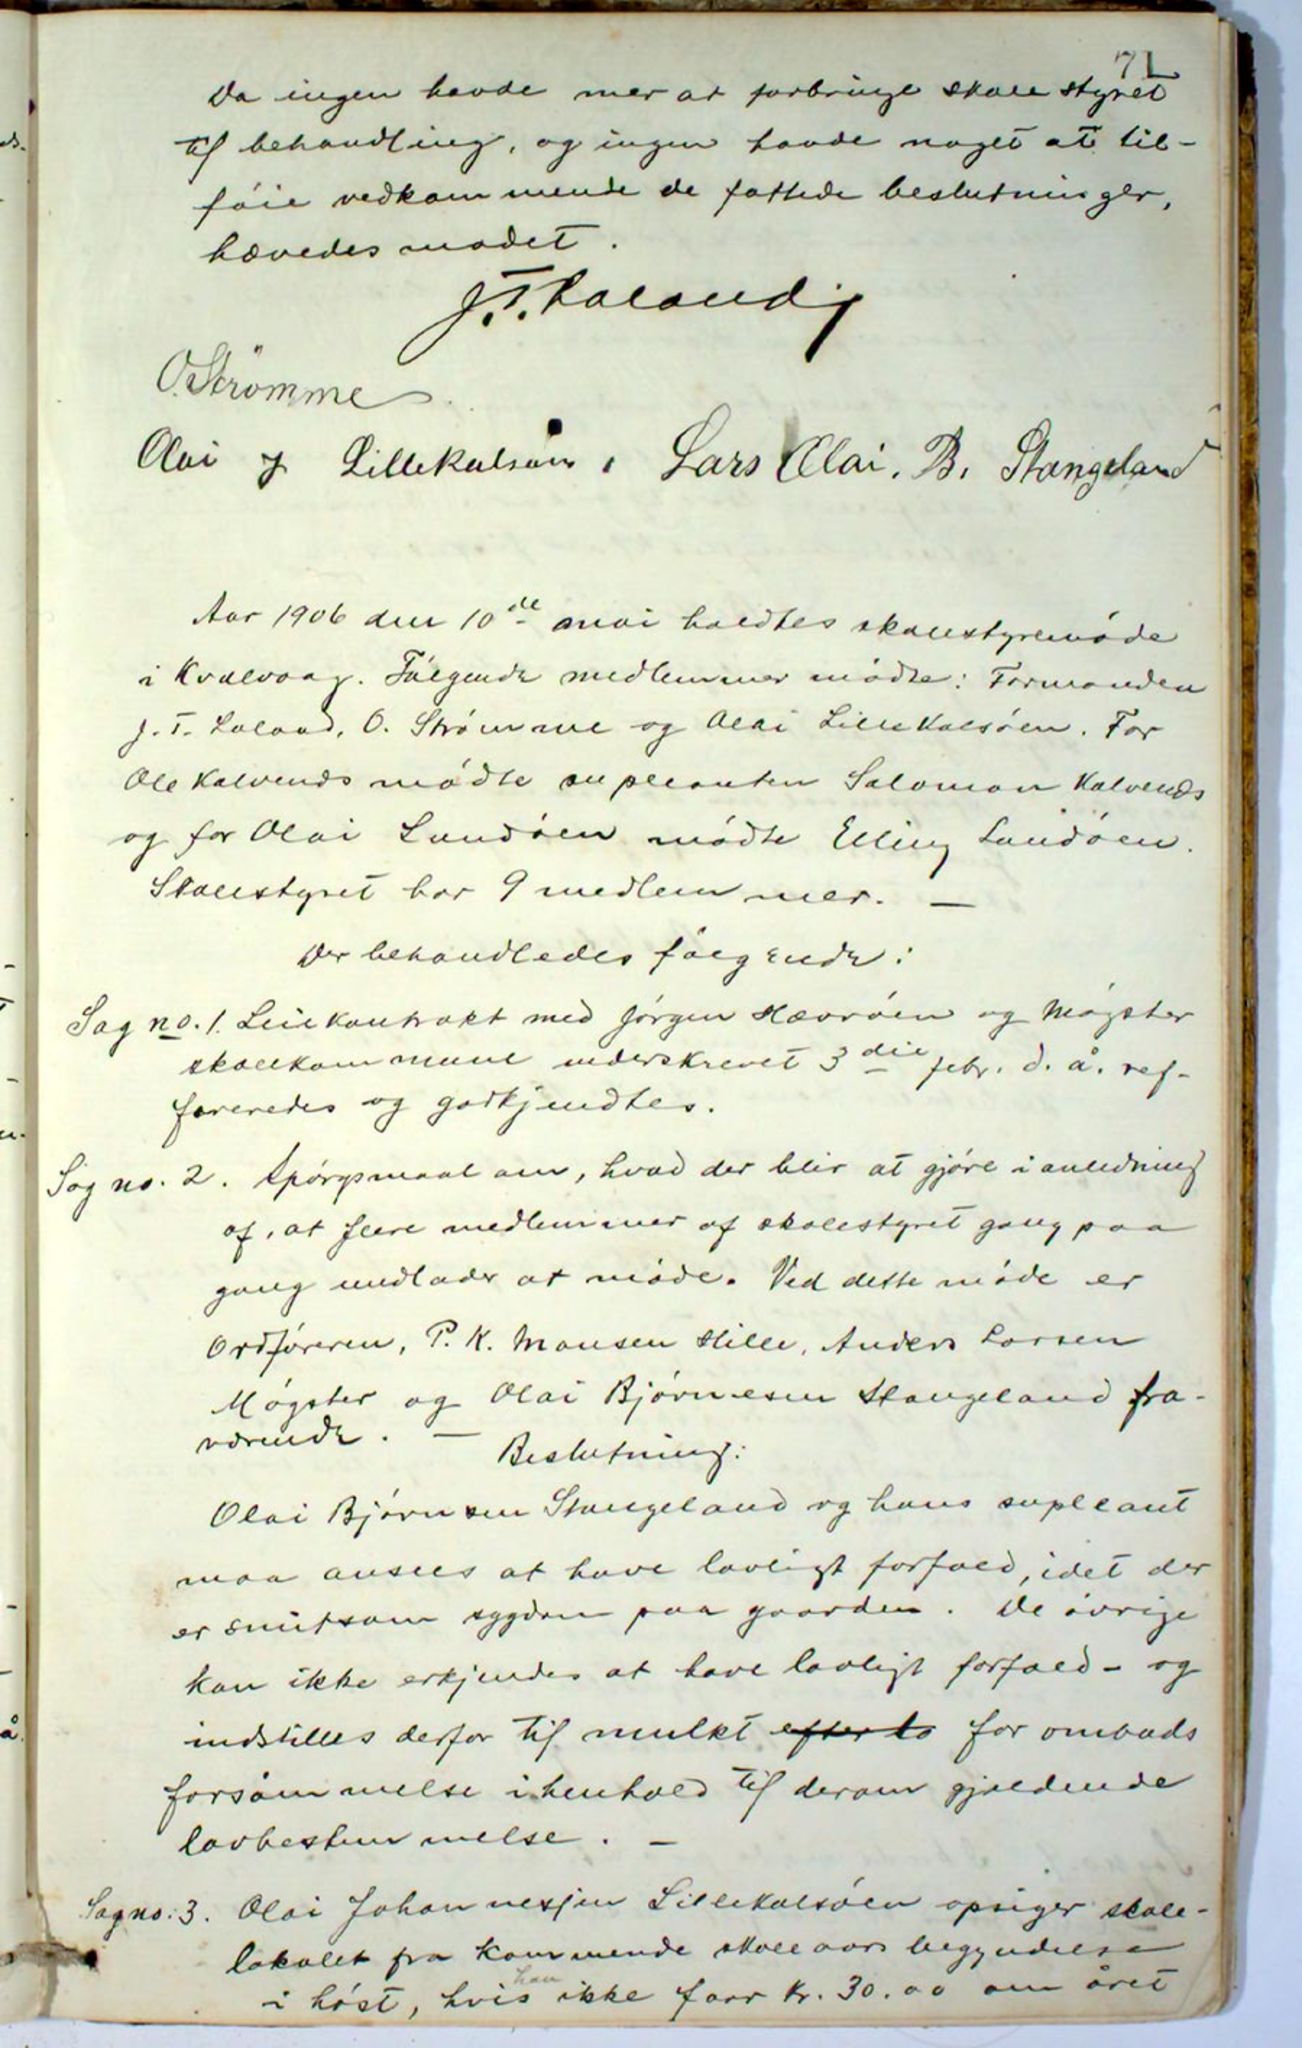 71
Da ingen havde mer at forbringe skolestyret
til behandling, og ingen havde noget at til-
føie vedkommende de fattede beslutninger,
hævedes mødet.
J. T. Laland
O. Strømme
Olai J Lillekalsøen, Lars Olai. B. Stangeland
Aar 1906 den 10de mai holdtes skolestyremøde
i Kvalvaag. Følgende medlemmer mødte: Formanden
J. T. Laland, O. Strømme og Olai Lillekalsøen. For
Ole Kalvenes mødte supleanten Salomon Kalvenes
og for Olai Lundøen mødte Elling Lundøen.
Skolestyret har 9 medlemmer. —
Der behandledes følgende:
Sag no. 1. Leiekontrakt med Jørgen Hævrøen og Møgster
skolekommune underskrevet 3die febr. d. å. ref-
fereredes og godkjendtes.
Sag no. 2. Spørgsmaal om, hvad der blir at gjøre i anledning
af, at flere medlemmer af skolestyret gang paa
gang undlader at møde. Ved dette møde er
Ordføreren, P. K. Monsen Hille, Anders Larsen
Møgster og Olai Bjørnesen Stangeland fra-
værende. —
Beslutning:
Olai Bjørnsen Stangeland og hans supleant
maa ansees at have lovligt forfald, idet der
er smitsom sygdom paa gaarden. De øvrige
kan ikke erkjendes at have lovligt forfald - og
indstilles derfor til mulkt efter lo for ombuds
forsømmelse i henhold til derom gjældende
lovbestemmelse. —
Sag no: 3. Olai Johannesjen Lillekalsøen opsiger skole-
lokalet fra kommende skoleaars begyndelse
i høst, hvis han ikke faar kr. 30.00 om året